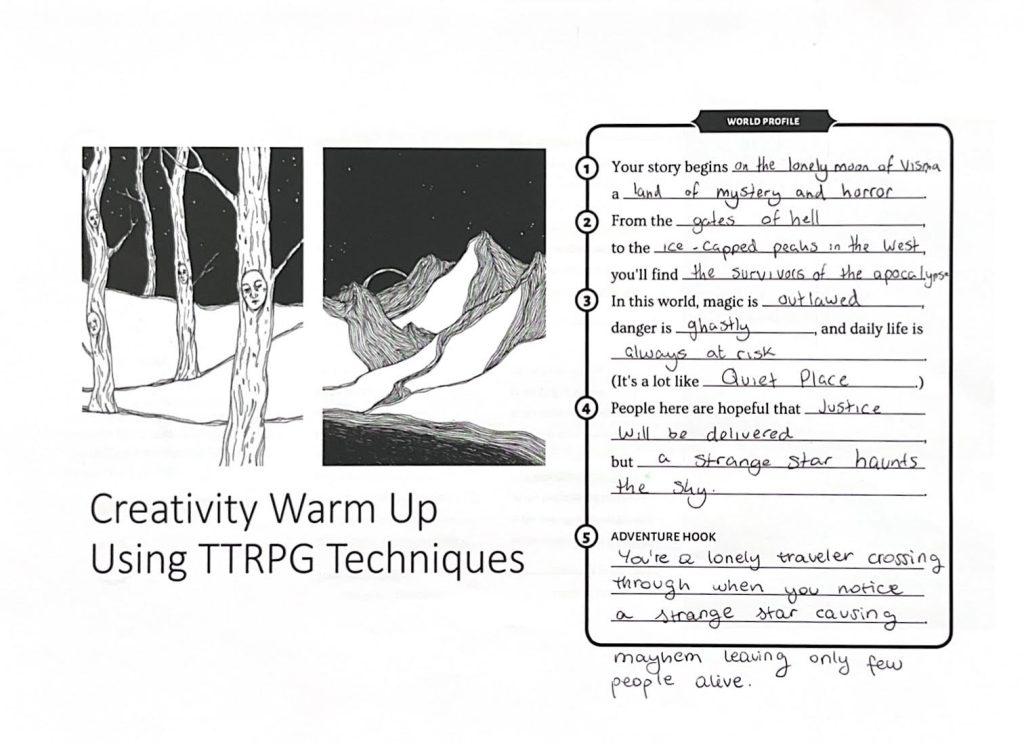 Creativity Warm Up
Using TTRPG Techniques
WORLD PROFILE
1 Your story begins on the lonely moon of Visma
a land of mystery and horror.
2 From the gates of hell,
to the ice-capped peaks in the West,
you'll find the survivors of the apocalypse
3 In this world, magic is outlawed,
danger is ghastly, and daily life is
always at risk.
(It's a lot like Quiet Place.)
4 People here are hopeful that Justice
will be delivered,
but a strange star haunts
the sky.
5 ADVENTURE HOOK
You're a lonely traveler crossing
through when you notice
a strange star causing
mayhem leaving only few
people alive.